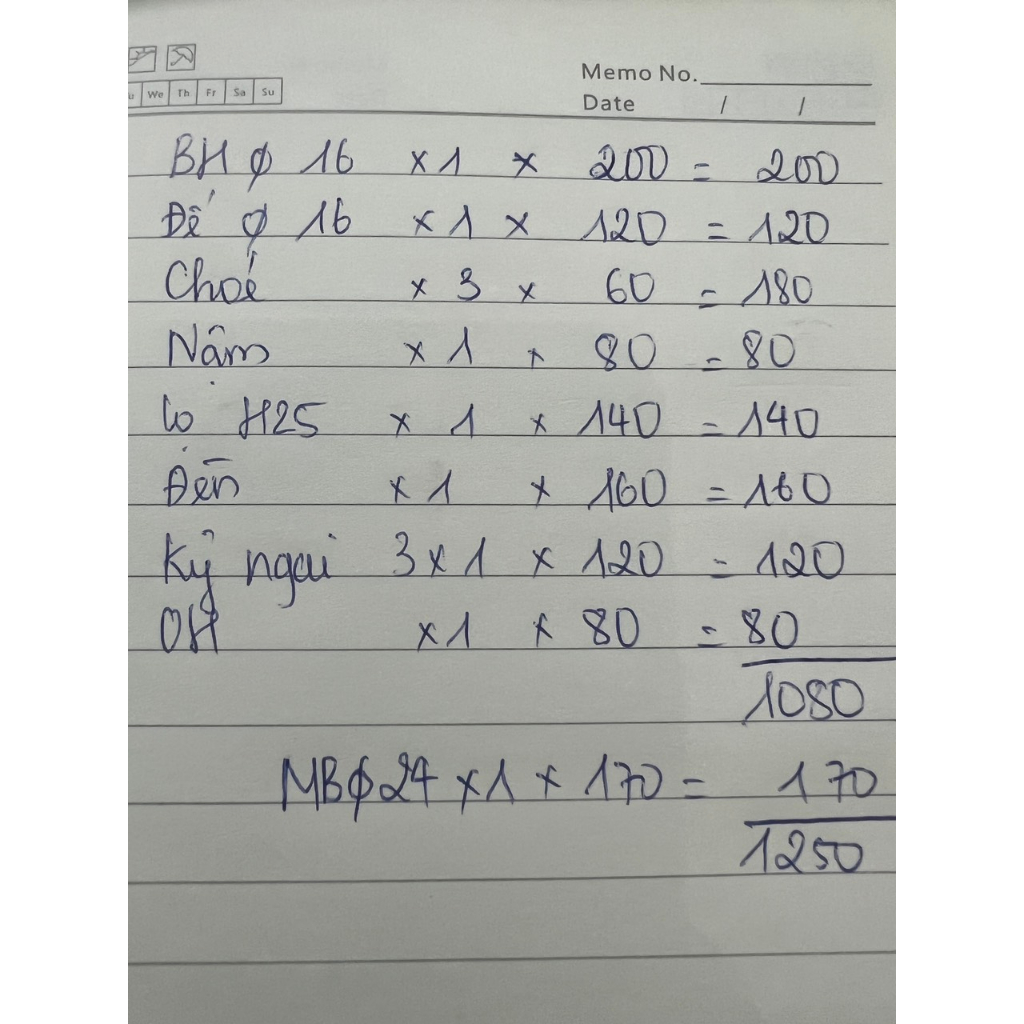 u We Th Fr Sa Su
Memo No.
Date / /
BH φ 16 x 1 x 200 = 200
Đế φ 16 x 1 x 120 = 120
Choé x 3 x 60 = 180
Nậm x 1 x 80 = 80
Lọ H25 x 1 x 140 = 140
Đèn x 1 x 160 = 160
Kỷ ngai 3 x 1 x 120 = 120
OH x 1 x 80 = 80
1080
MB φ 24 x 1 x 170 = 170
1250